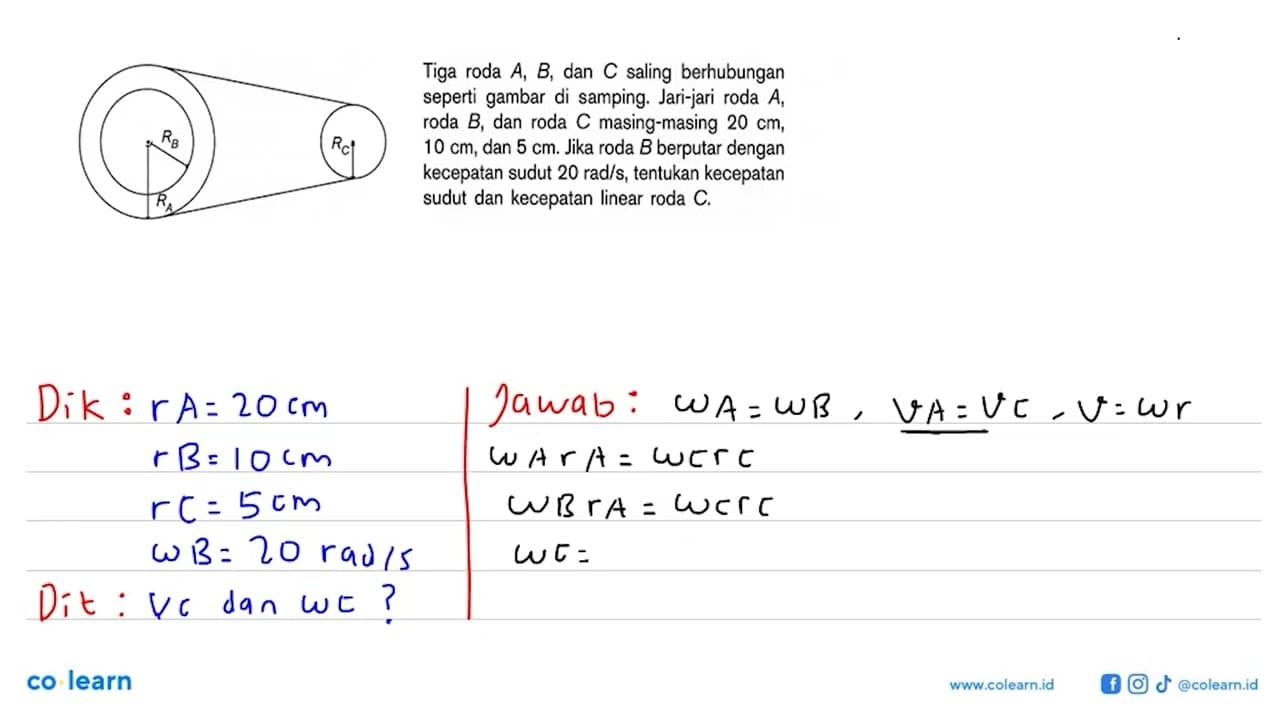 R_B
R_A
R_C
Tiga roda A, B, dan C saling berhubungan
seperti gambar di samping. Jari-jari roda A,
roda B, dan roda C masing-masing 20 cm,
10 cm, dan 5 cm. Jika roda B berputar dengan
kecepatan sudut 20 rad/s, tentukan kecepatan
sudut dan kecepatan linear roda C.
Dik : rA = 20 cm
rB = 10 cm
rC = 5 cm
ωB = 20 rad/s
Dit : Vc dan ωC ?
Jawab : ωA = ωB , VA = VC , V = ωr
ωA rA = ωC rC
ωB rA = ωC rC
ωC =
co·learn
www.colearn.id
@colearn.id